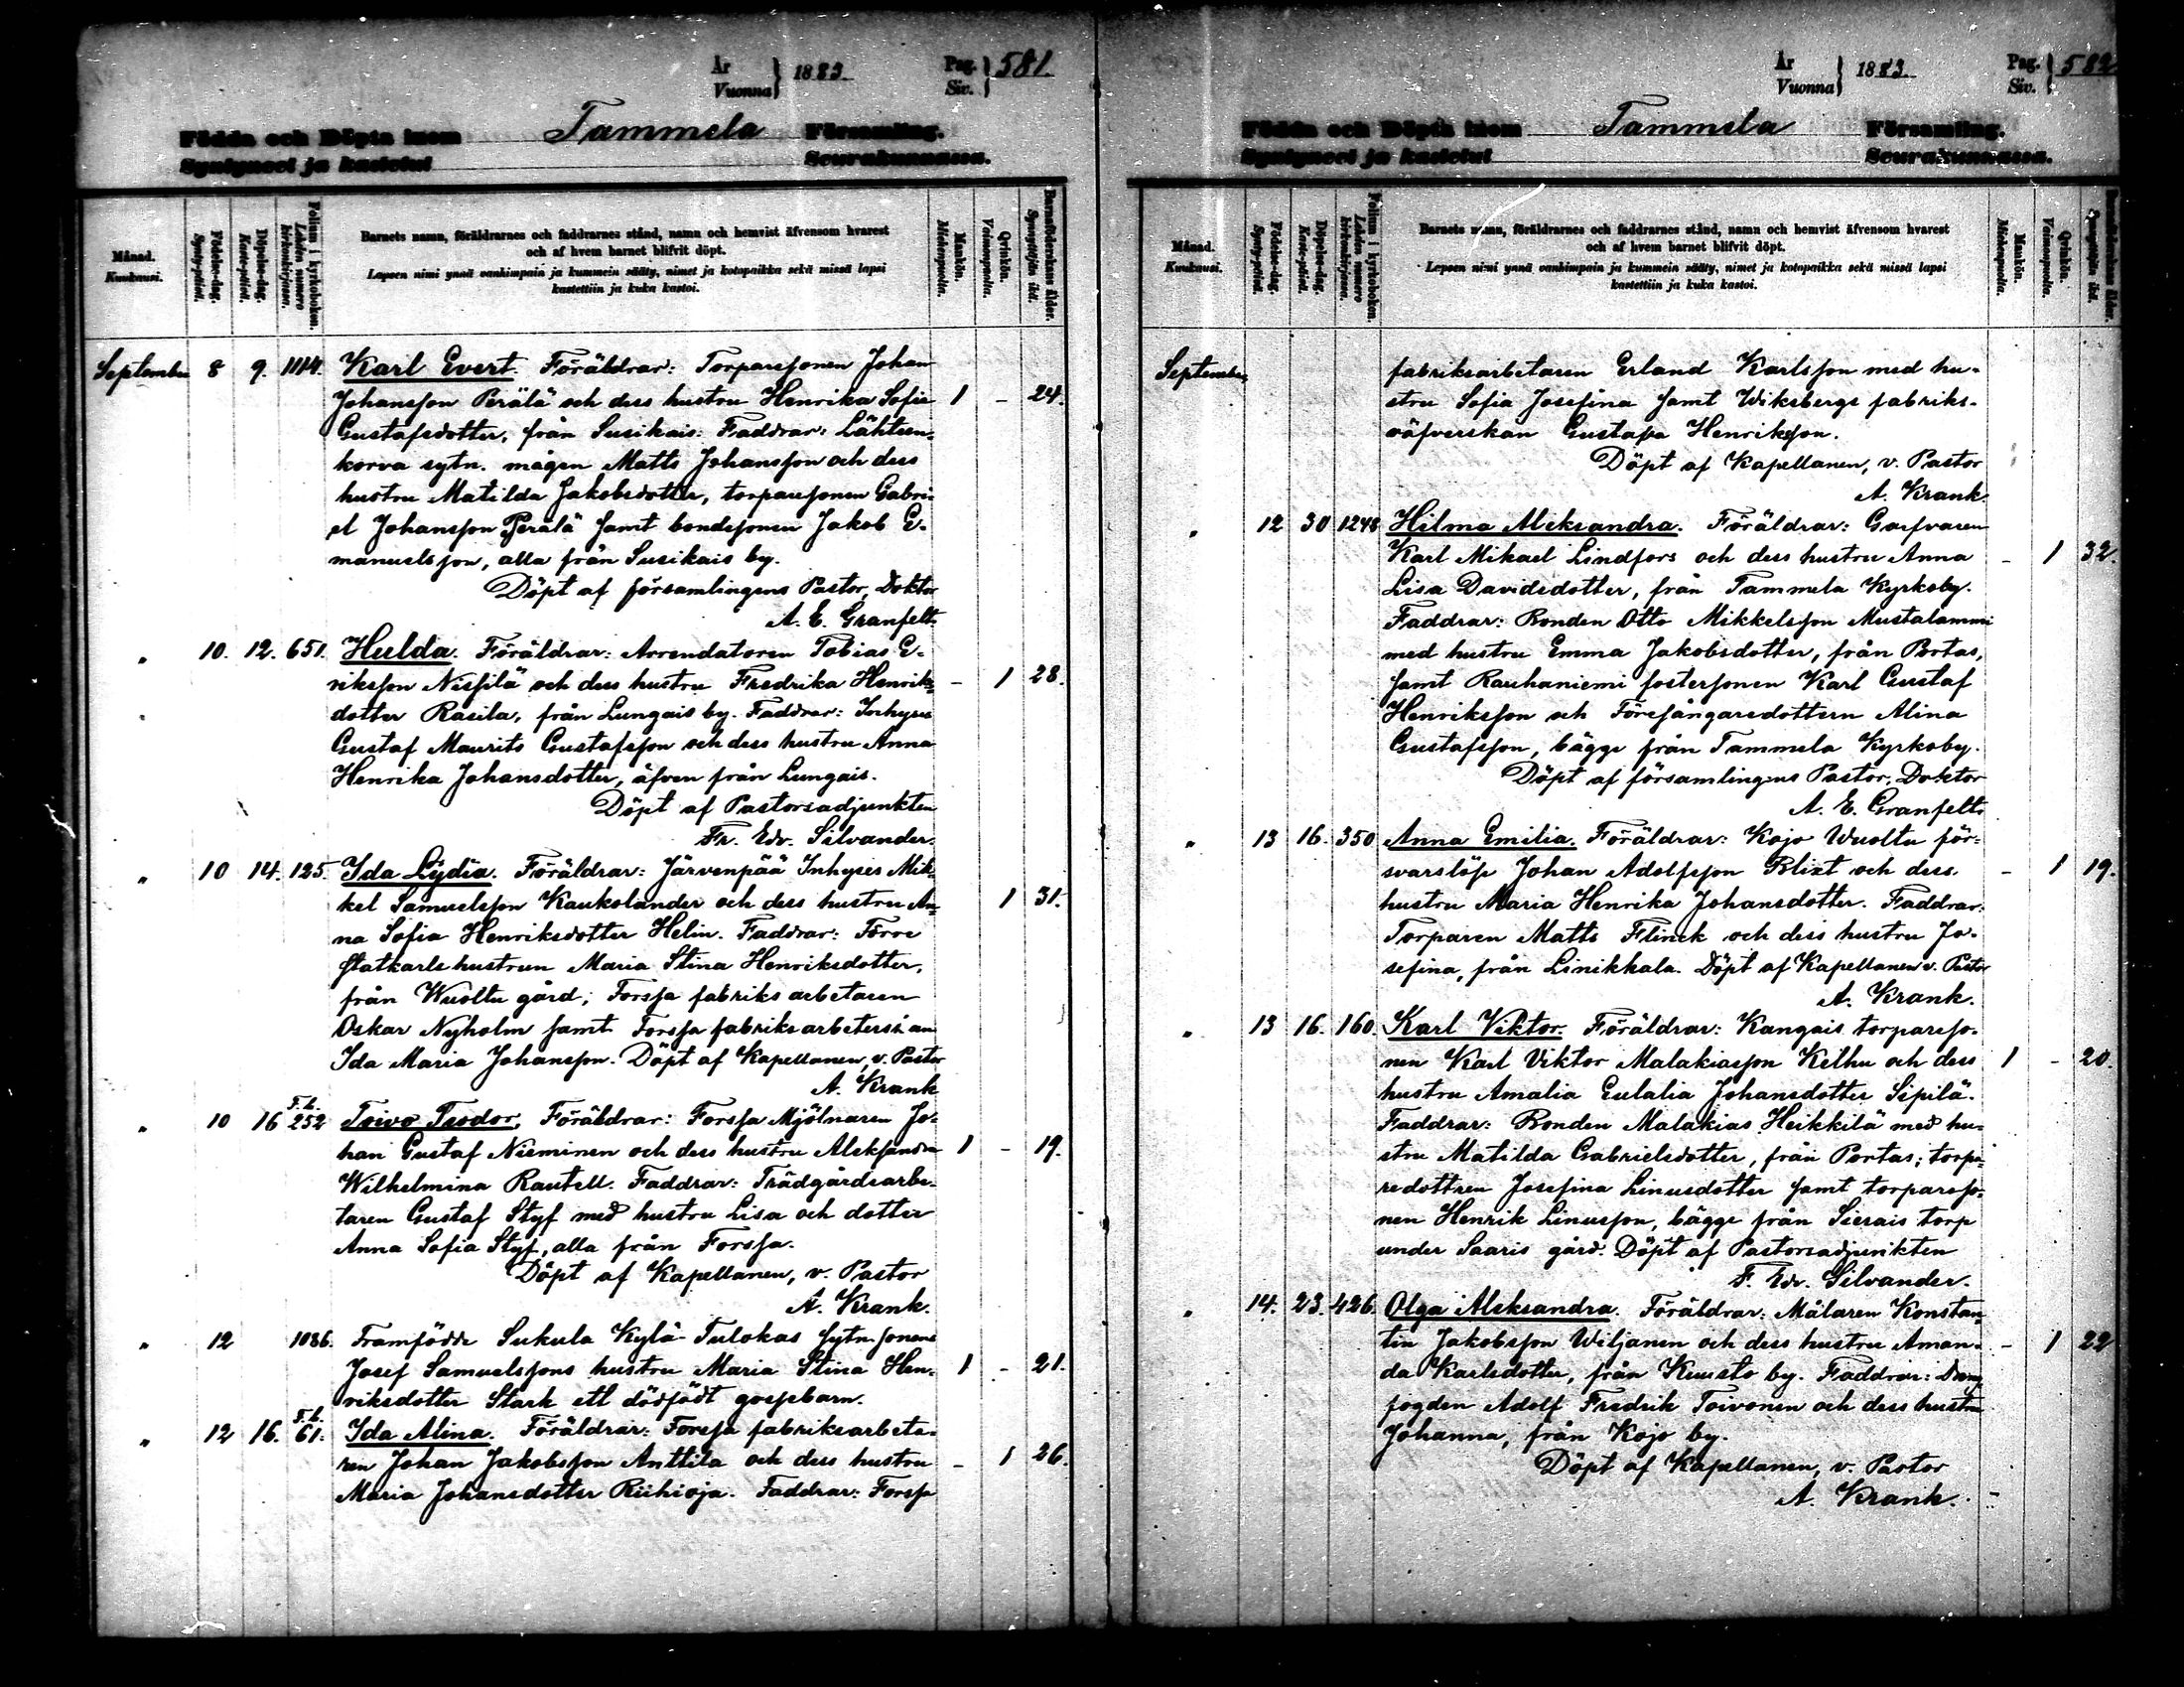 År
Vuonna } 1883. Pag.
Siv. } 581.
Födda och Döpta inom Tammela Församling.
Syntyneet ja kastetut Seurakunnassa.
Månad.
Kuukausi.
Födelse-dag.
Synty-päivä.
Döpelse-dag.
Kaste-päivä.
Folium i kyrkoboken.
Lehden numero kirkonkirjassa.
Barnets namn, föräldrarnes och faddrarnes stånd, namn och hemvist äfvensom hvarest
och af hvem barnet blifvit döpt.
Lapsen nimi ynnä vanhimpain ja kummein sääty, nimet ja kotopaikka sekä missä lapsi
kastettiin ja kuka kastoi.
Mankön.
Miehenpuolta.
Qvinkön.
Vaimonpuolta.
Barnaföderskans ålder.
Synnyttäjän ikä.
September 8 9. 1114. Karl Evert. Föräldrar: Torparesonen Johan
Johansson Perälä och dess hustru Henrika Sofia 1 - 24.
Gustafsdotter, från Susikais: Faddrar: Lähteen-
korva sytn. mågen Matts Johansson och dess
hustru Matilda Jakobsdotter, torparesonen Gabri-
el Johansson Perälä samt bondesonen Jakob E-
manuelsson, alla från Susikais by.
Döpt af församlingens Pastor, Doktor
A. E. Granfelt.
" 10. 12. 651. Hulda. Föräldrar: Arrendatoren Tobias E-
riksson Nissilä och dess hustru Fredrika Henriks- - 1 28.
dotter Rasila, från Lungais by. Faddrar: Inhyses
Gustaf Maurits Gustafsson och dess hustru Anna
Henrika Johansdotter, äfven från Lungais.
Döpt af Pastorsadjunkten
Fr. Edv. Silvander.
" 10 14. 125. Ida Lydia. Föräldrar: Järvenpää Inhyses Mik-
kel Samuelsson Kaukolander och dess hustru An- 1 31.
na Sofia Henriksdotter Helin. Faddrar: Förre
statkarlshustrun Maria Stina Henriksdotter,
från Wuoltu gård; Forssa fabriksarbetaren
Oskar Nyholm samt Forssa fabriksarbeterskan
Ida Maria Johansson. Döpt af Kapellanen, v. Pastor
A. Krank
" 10 16 F.L. 252 Toivo Teodor. Föräldrar: Forssa Mjölnaren Jo-
han Gustaf Nieminen och dess hustru Aleksandra 1 - 19.
Wilhelmina Rautell. Faddrar: Trädgårdsarbe-
taren Gustaf Styf med hustru Lisa och dotter
Anna Sofia Styf, alla från Forssa.
Döpt af Kapellanen, v. Pastor
A. Krank.
" 12 1086. Framfödde Sukula Kylä-Tulokas sytn. sonens
Josef Samuelssons hustru Maria Stina Hen- 1 - 21.
riksdotter Stark ett dödfödt gossbarn.
" 12 16. F.L. 61. Ida Alina. Föräldrar: Forssa fabriksarbeta-
ren Johan Jakobsson Anttila och dess hustru - 1 26.
Maria Johansdotter Riihioja. Faddrar: Forssa
År
Vuonna } 1883. Pag.
Siv. } 582
Födda och Döpta inom Tammela Församling.
Syntyneet ja kastetut Seurakunnassa.
Månad.
Kuukausi.
Födelse-dag.
Synty-päivä.
Döpelse-dag.
Kaste-päivä.
Folium i kyrkoboken.
Lehden numero kirkonkirjassa.
Barnets namn, föräldrarnes och faddrarnes stånd, namn och hemvist äfvensom hvarest
och af hvem barnet blifvit döpt.
Lapsen nimi ynnä vanhimpain ja kummein sääty, nimet ja kotopaikka sekä missä lapsi
kastettiin ja kuka kastoi.
Mankön.
Miehenpuolta.
Qvinkön.
Vaimonpuolta.
Barnaföderskans ålder.
Synnyttäjän ikä.
September fabriksarbetaren Erland Karlsson med hu-
stru Sofia Josefina samt Wiksbergs fabriks-
väfverskan Gustafva Henriksson.
Döpt af Kapellanen, v. Pastor
A. Krank.
" 12 30 1248 Hilma Aleksandra. Föräldrar: Garfvaren
Karl Mikael Lindfors och dess hustru Anna - 1 32.
Lisa Davidsdotter, från Tammela Kyrkoby.
Faddrar: Bonden Otto Mikkelsson Mustalammi
med hustru Emma Jakobsdotter, från Portas,
samt Rauhaniemi fostersonen Karl Gustaf
Henriksson och Föresångaredottern Alina
Gustafsson, bägge från Tammela Kyrkoby.
Döpt af församlingens Pastor, Doktor
A. E. Granfelt.
" 13 16. 350 Anna Emilia. Föräldrar: Kojo Wuoltu för-
svarslöse Johan Adolfsson Blixt och dess - 1 19.
hustru Maria Henrika Johansdotter. Faddrar:
Torparen Matts Flinck och dess hustru Jo-
sefina, från Linikkala. Döpt af Kapellanen v. Pastor
A. Krank.
" 13 16. 160. Karl Viktor. Föräldrar: Kangais torpareso-
nen Karl Viktor Malakiasson Kelhu och dess 1 - 20.
hustru Amalia Eulalia Johansdotter Sipilä.
Faddrar: Bonden Malakias Heikkilä med hu-
stru Matilda Gabrielsdotter, från Portas; torpa-
redottren Josefina Linusdotter samt torpareso-
nen Henrik Linusson, bägge från Sierais torp
under Saaris gård. Döpt af Pastorsadjunkten
F. Edv. Silvander.
" 14. 23. 426. Olga Aleksandra. Föräldrar: Målaren Konstan-
tin Jakobsson Wiljanen och dess hustru Aman- - 1 22
da Karlsdotter, från Kuusto by. Faddrar:
fogden Adolf Fredrik Toivonen och dess hustru
Johanna, från Kojo by.
Döpt af Kapellanen, v. Pastor
A. Krank.